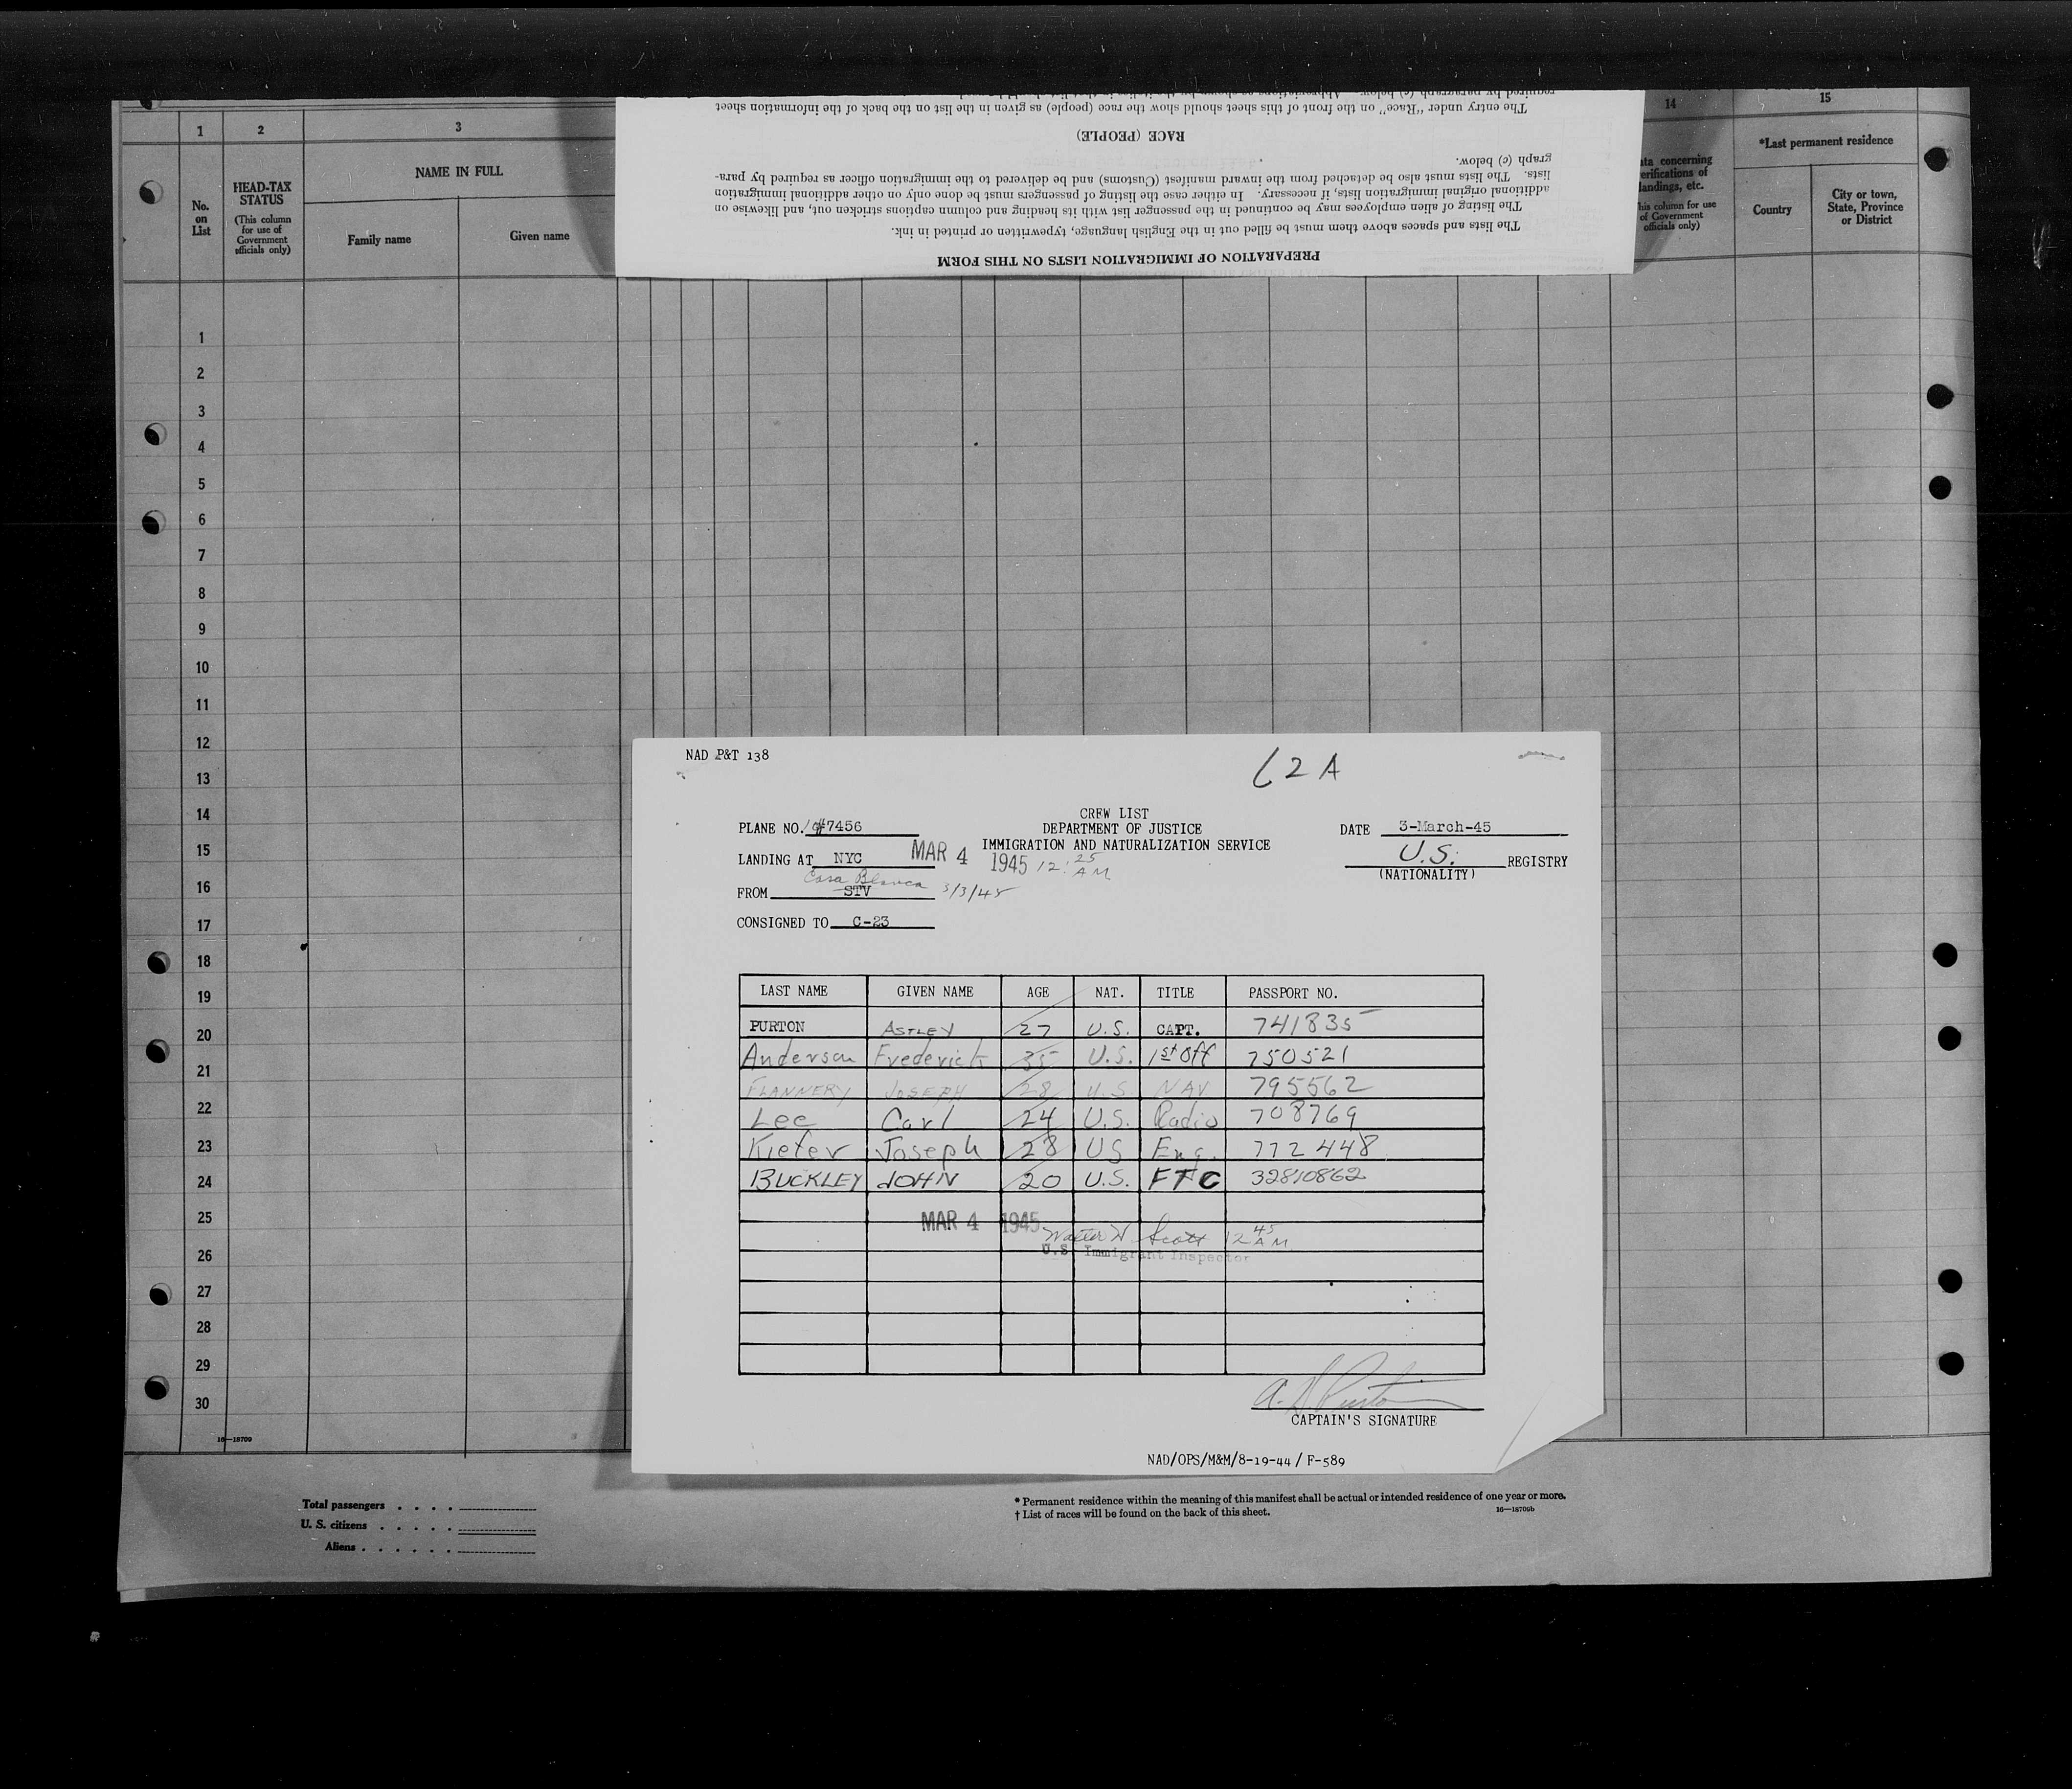 1 2 3 14 15
No. on List
HEAD-TAX STATUS
(This column for use of Government officials only)
NAME IN FULL
Family name Given name
required by paragraph (c) below.
The entry under "Race" on the front of this sheet should show the race (people) as given in the list on the back of the information sheet
RACE (PEOPLE)
graph (c) below.
lists. The lists must also be detached from the inward manifest (Customs) and be delivered to the immigration officer as required by para-
additional original immigration lists, if necessary. In either case the listing of passengers must be done only on other additional immigration
The listing of alien employees may be continued in the passenger list with its heading and column captions stricken out, and likewise on
The lists and spaces above them must be filled out in the English language, typewritten or printed in ink.
PREPARATION OF IMMIGRATION LISTS ON THIS FORM
ata concerning
erifications of
landings, etc.
his column for use
of Government
officials only)
*Last permanent residence
Country
City or town, State, Province or District
1
2
3
4
5
6
7
8
9
10
11
12
13
14
15
16
17
18
19
20
21
22
23
24
25
26
27
28
29
30
16—18709
NAD P&T 138
62A
CREW LIST
PLANE NO. #7456 DEPARTMENT OF JUSTICE DATE 3-March-45
IMMIGRATION AND NATURALIZATION SERVICE
LANDING AT NYC MAR 4 1945 12:25 AM U.S. REGISTRY
(NATIONALITY)
Casa Blanca
FROM STV 3/3/45
CONSIGNED TO C-23
LAST NAME GIVEN NAME AGE NAT. TITLE PASSPORT NO.
PURTON ASTLEY 27 U.S. CAPT. 741835
Anderson Frederick 35 U.S. 1st Off 750521
FLANNERY JOSEPH 28 U.S NAV 795562
Lee Carl 24 U.S. Radio 708769
Kiefer Joseph 28 US Eng. 772448
BUCKLEY JOHN 20 U.S. FTC 32810862
MAR 4 1945
Walter W Scott 12 45 AM
U.S. Immigrant Inspector
A. D Purton
CAPTAIN'S SIGNATURE
NAD/OPS/M&M/8-19-44 / F-589
Total passengers . . . .
U. S. citizens . . . . .
Aliens . . . . . .
* Permanent residence within the meaning of this manifest shall be actual or intended residence of one year or more.
† List of races will be found on the back of this sheet.
16—18709b